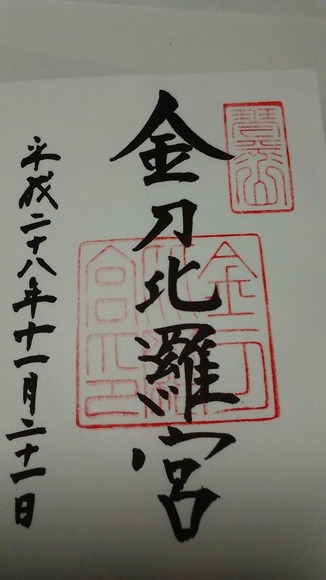 金刀比羅宮
平成二十八年十一月二十一日
金刀
比羅
宮印